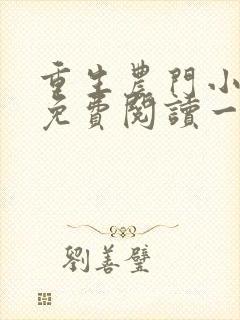 重生農門小
免費閱讀一
劉善璧